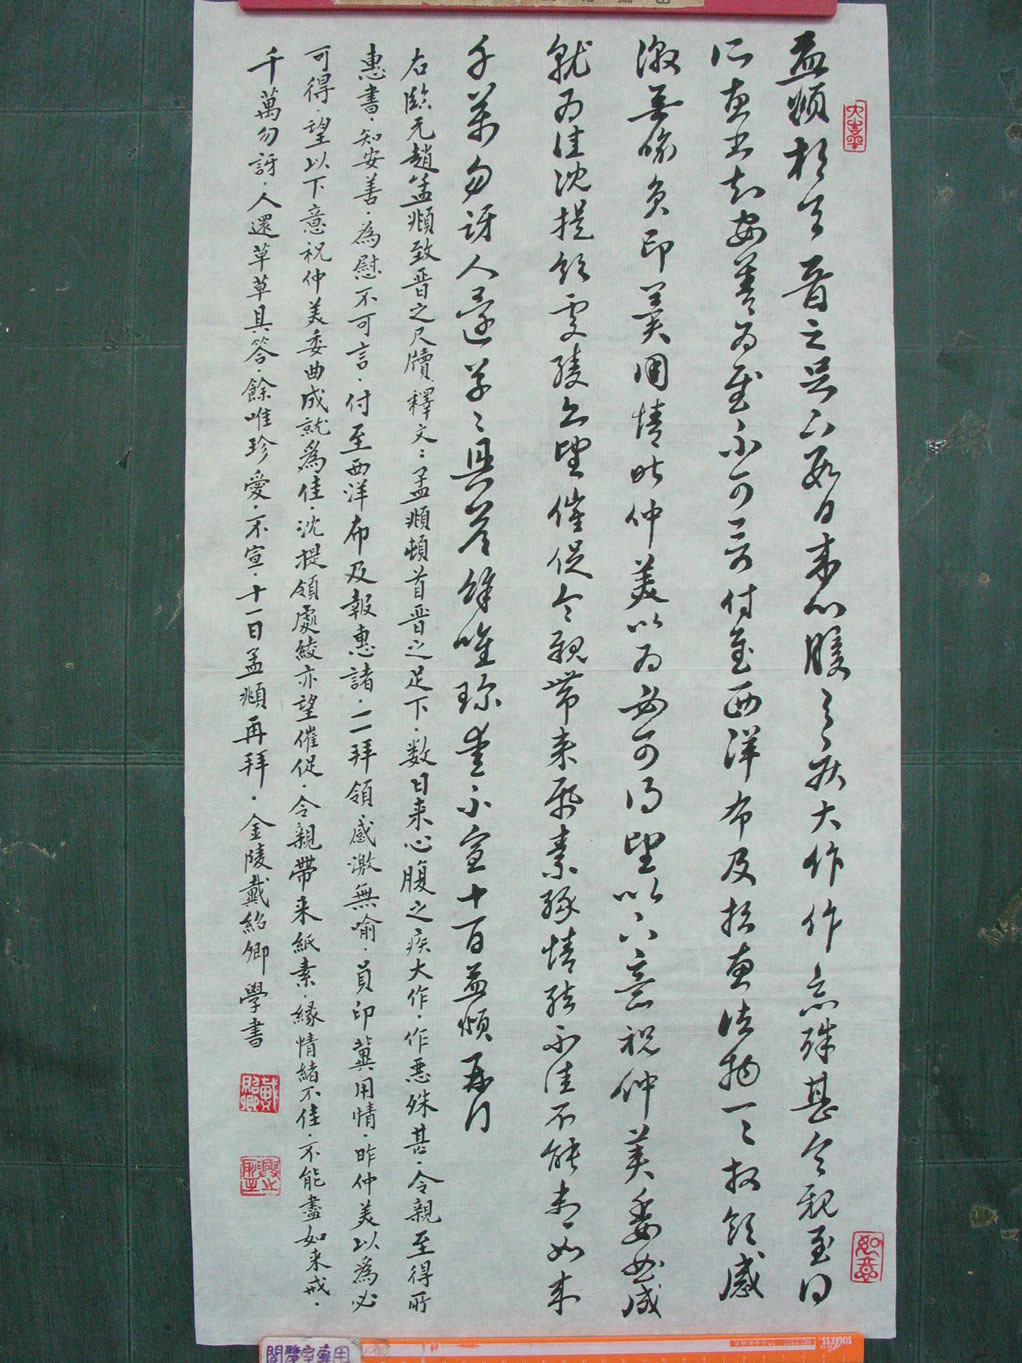 孟頫頓首晋之足下數日来心腹之疾大作作惡殊甚令親至得
所惠書知安善為慰不可言付至西洋布及報惠諸物一一拜領感
激無喻負印冀用情昨仲美以為必可得望以下意祝仲美委曲成
就為佳沈提領處綾亦望催促令親帶来紙素緣情緒不佳不能盡如来
千萬勿訝人還草草具答餘唯珍愛不宣十一日孟頫再拜
右臨元趙孟頫致晋之尺牘．釋文：孟頫頓首晋之足下．数日来心腹之疾大作．作惡殊甚．令親至得所
惠書．知安善．為慰不可言．付至西洋布及報惠諸．一一拜領感激無喻．員印冀用情．昨仲美以為必
可得．望以下意祝仲美委曲成就為佳．沈提領處綾亦望催促．令親帶来紙素．緣情緒不佳．不能盡如来戒．
千萬勿訝．人還草草具答．餘唯珍愛．不宣．十一日孟頫再拜．金陵戴紹卿學書
如意